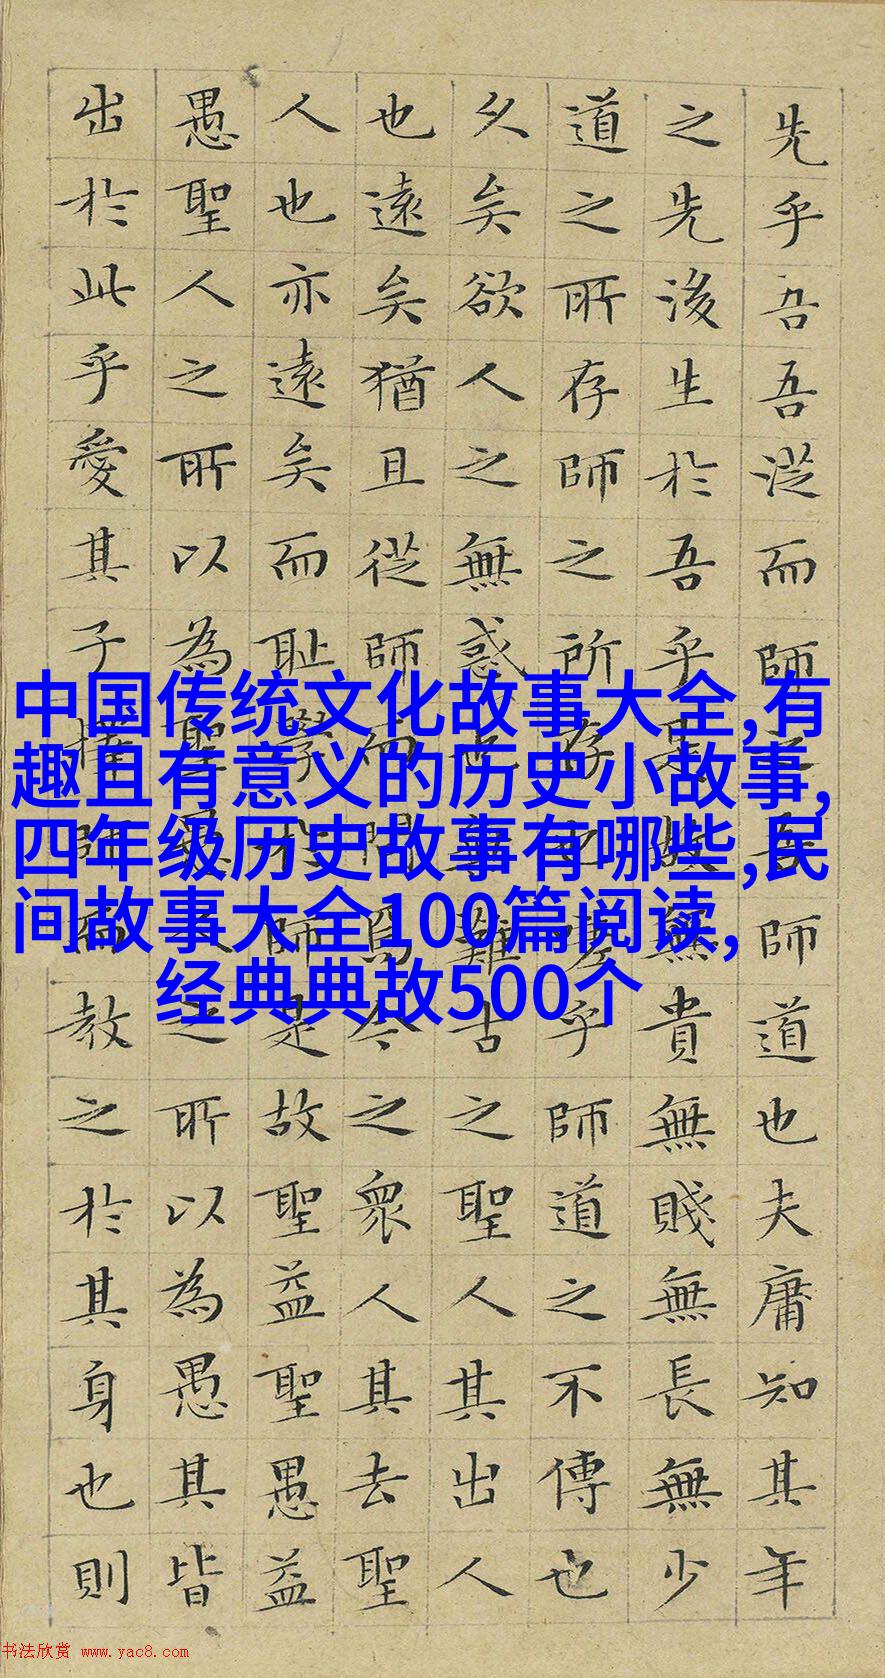 先乎吾吾從而師吾師道也夫庸知其年
之先後生於吾乎是故無貴無賤無長無少
道之所存師之所存也嗟乎師道之不傳也
久矣欲人之無惑也難古之聖人其出人
也遠矣猶且從師而問焉今之眾人其去聖
人也亦遠矣而恥學於師是故聖益聖愚益
愚聖人之所以為聖愚人之所以為愚其皆
出於此乎愛其子擇師而教之於其身也則
中国传统文化故事大全,有
趣且有意义的历史小故事,
四年级历史故事有哪些,民
间故事大全100篇阅读,
经典典故500个
书法欣赏 www.yac8.com